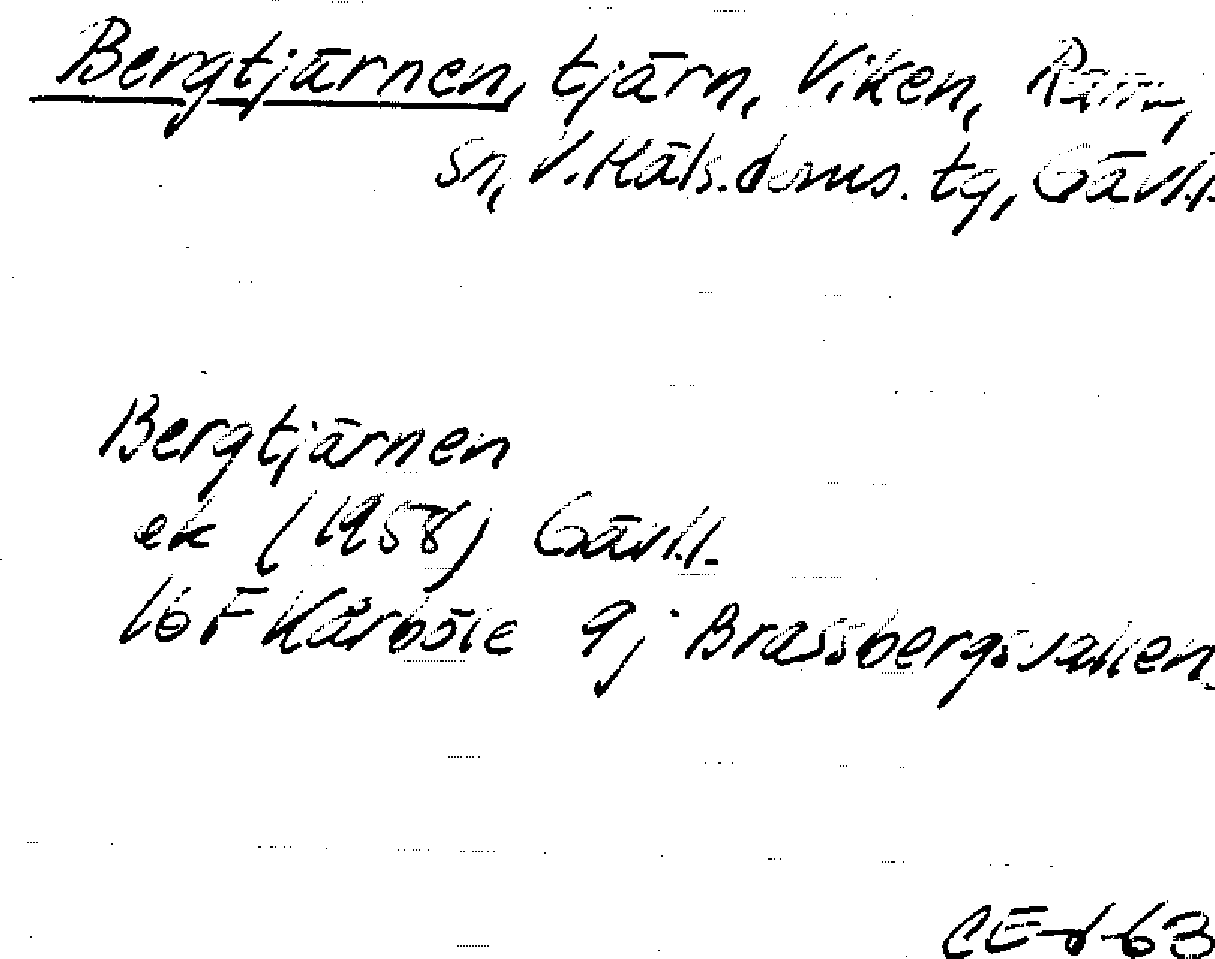 Bergtjärnen, tjärn, Viken, Ramsjö
sn, V. Häls. doms. tg, Gävl.l.
Bergtjärnen
ek (1958) Gävl.l.
16 F Kårböle 9j Brassbergsvallen
CEd 63